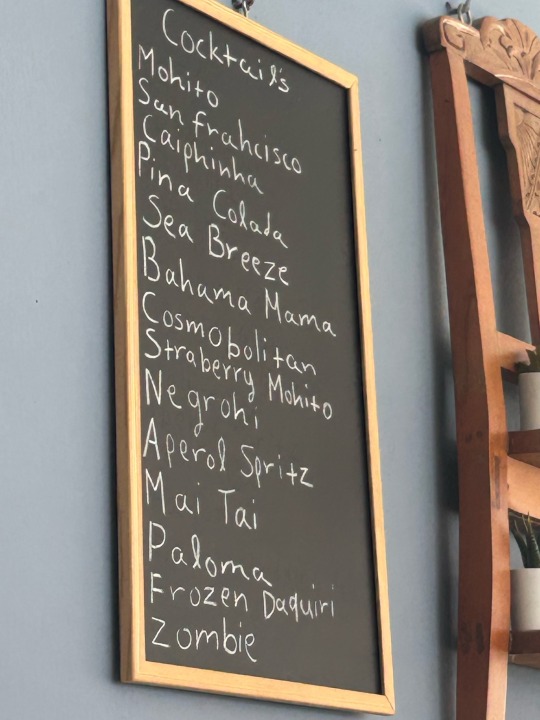 Cocktail's
Mohito
San francisco
Caiphinha
Pina Colada
Sea Breeze
Bahama Mama
Cosmobolitan
Straberry Mohito
Negrohi
Aperol Spritz
Mai Tai
Paloma
Frozen Daquiri
Zombie